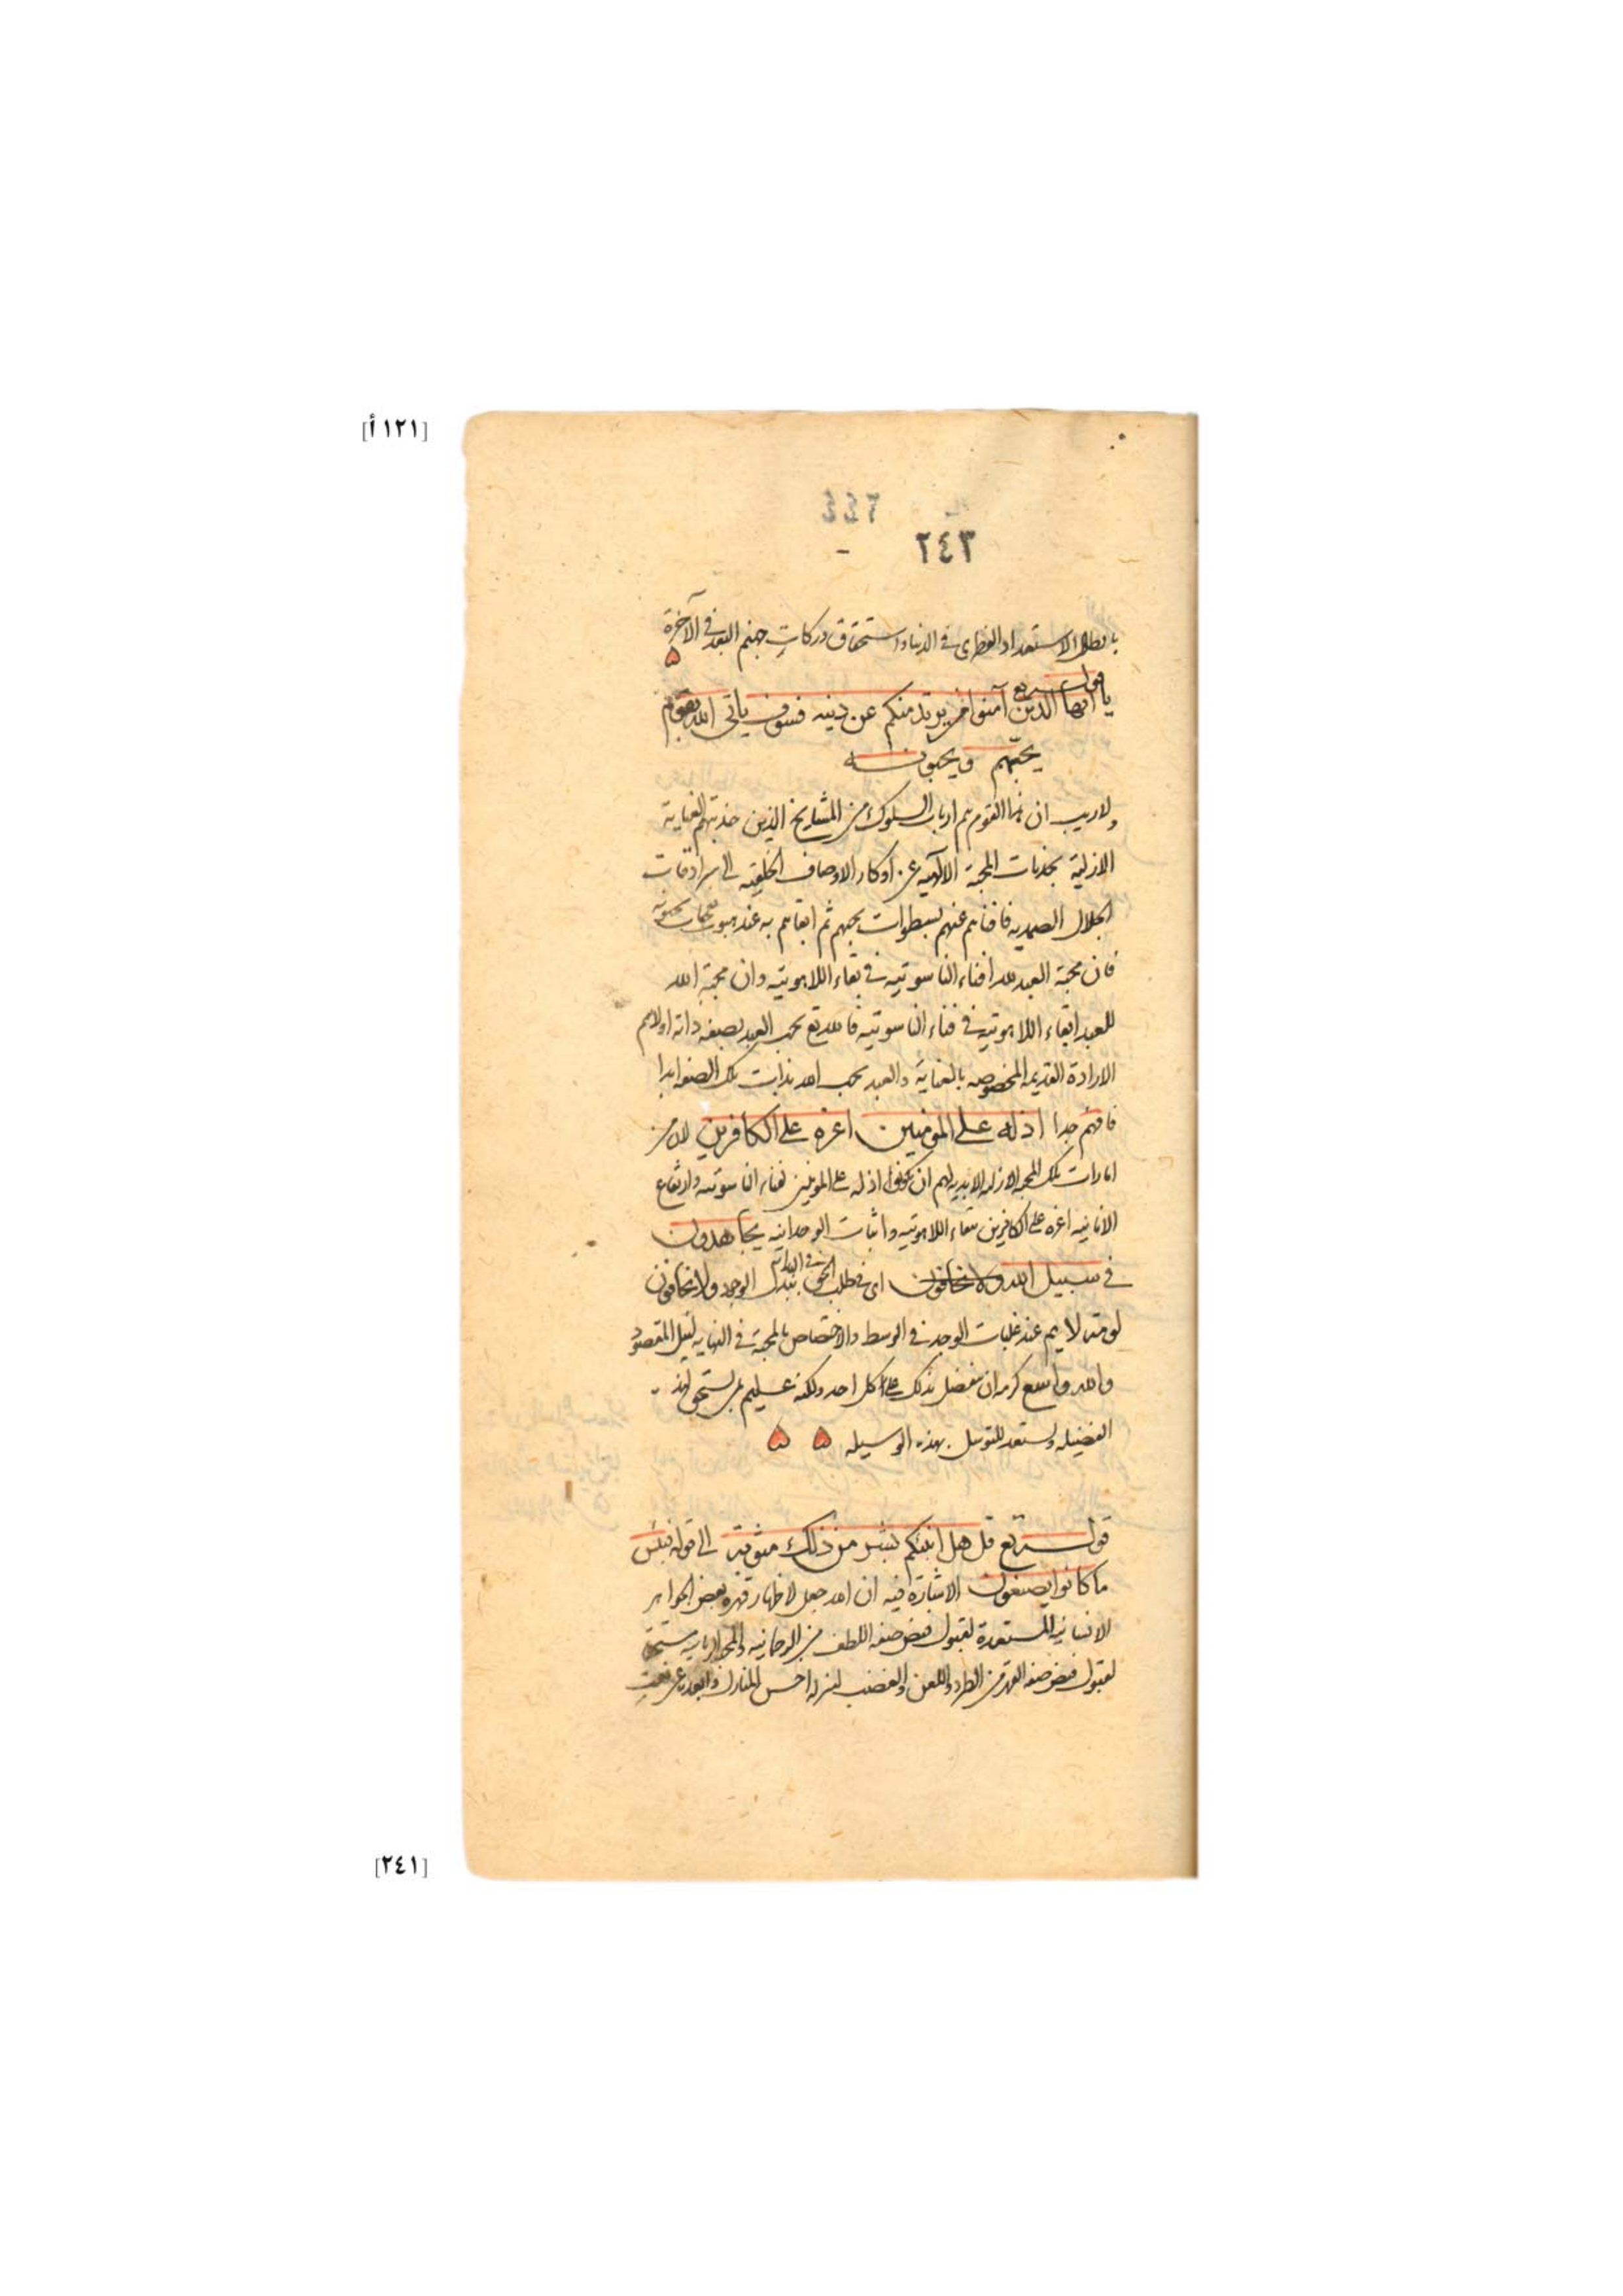 [١٢١ أ]
٢٤٣
بابطال الاستعداد الفطرى فى الدنيا واستحقاق دركات جهنم البعد فى الآخرة
قوله تع
يا ايها الذين آمنوا من يرتد منكم عن دينه فسوف ياتى الله بقوم
يحبهم ويحبونه
ولا ريب ان هذا القوم هم ارباب السلوك من المشايخ الذين جذبتهم العناية
الازلية بجذبات المحبة الالهية عن اوكار الاوصاف الخلقية الى سرادقات
الجلال الصمدية فافناهم عنهم بسطوات يحبهم ثم ابقاهم به عند هبوب نفحات يحبونه
فان محبة العبد لله افناء الناسوتية فى بقاء اللاهوتية وان محبة الله
للعبد ابقاء اللاهوتية فى فناء الناسوتية فالله تع يحب العبد بصفة ذاته
الارادة القديمة المخصوصة بالعناية والعبد يحب الله بذات تلك الصفة ابدا
فافهم جدا اذلة على المؤمنين اعزة على الكافرين لان من
امارات تلك المحبة الازلية الابدية لهم ان يكونوا اذلة على المومنين لفناء الناسوتية وارتفاع
الانانية اعزة على الكافرين ببقاء اللاهوتية واثبات الوحدانية يجاهدون
فى سبيل الله ولا يخافون اى فى طلب الحق فى البداية ببذل الوجود ولا يخافون
لومة لايم عند غلبات الوجد فى الوسط والاختصاص بالمحبة فى النهاية لنيل المقصود
والله واسع كرمه ان يتفضل بذلك على كل احد ولكنه عليم بمن يستحق لهذه
الفضيلة ويستعد للتوسل بهذه الوسيلة
قوله تع قل هل انبئكم بشر من ذلك مثوبة الى قوله لبئس
ما كانوا يصنعون الاشارة فيه ان الله جعل لاظهار قهره بعض الجواهر
الانسانية المستعدة لقبول فيض صفة اللطف من الروحانية
لقبول فيض صفة القهر من الطرد واللعن والغضب لنزله اخس المنازل وابعد
[٢٤١]